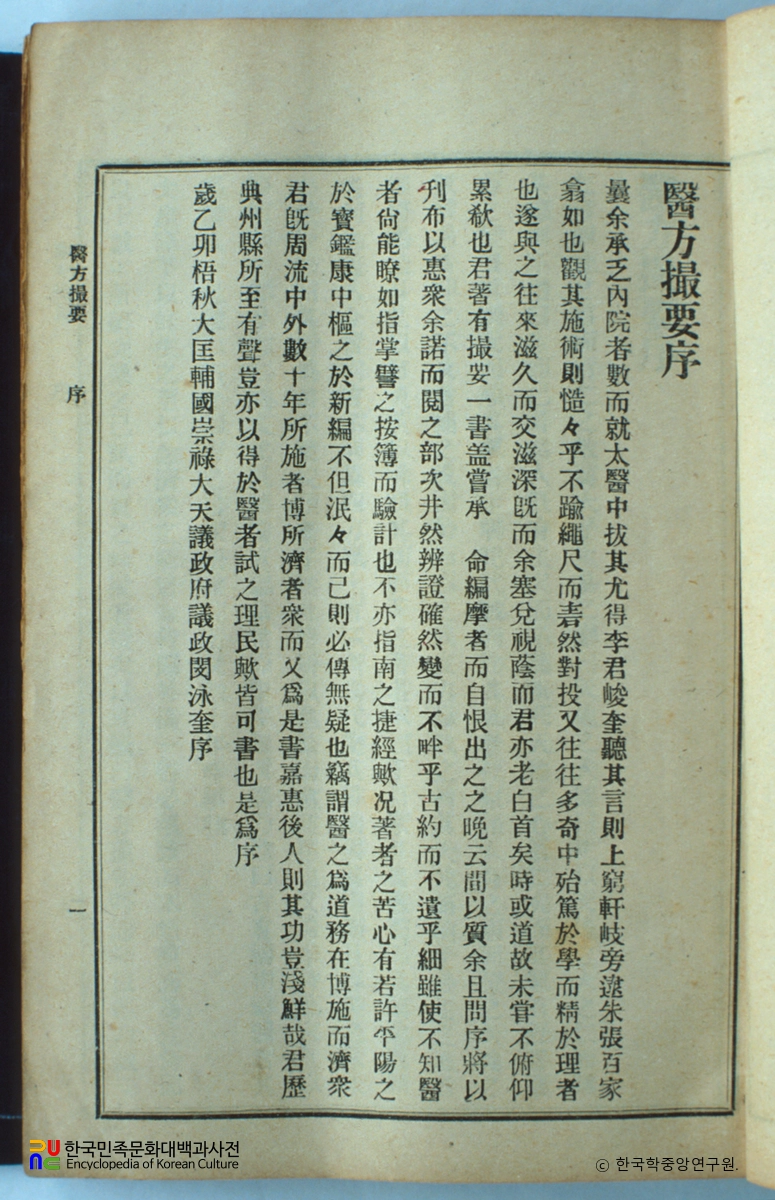 醫方撮要序
曩余承乏內院者數而就太醫中拔其尤得李君峻奎聽其言則上窮軒岐旁逮朱張百家
翕如也觀其施術則慥々乎不踰繩尺而砉然對投又往往多奇中殆篤於學而精於理者
也遂與之往來滋久而交滋深旣而余塞兌視蔭而君亦老白首矣時或道故未甞不俯仰
累欷也君著有撮要一書盖嘗承　命編摩者而自恨出之之晩云間以質余且問序將以
刋布以惠衆余諾而閱之部次井然辨證確然變而不畔乎古約而不遺乎細雖使不知醫
者尙能瞭如指掌譬之按簿而驗計也不亦指南之捷經歟况著者之苦心有若許平陽之
於寶鑑康中樞之於新編不但泯々而已則必傳無疑也竊謂醫之爲道務在博施而濟衆
君旣周流中外數十年所施者博所濟者衆而又爲是書嘉惠後人則其功豈淺鮮哉君歷
典州縣所至有聲豈亦以得於醫者試之理民歟皆可書也是爲序
歲乙卯梧秋大匡輔國崇祿大夫議政府議政閔泳奎序
醫方撮要　序　一
한국민족문화대백과사전
Encyclopedia of Korean Culture
© 한국학중앙연구원.